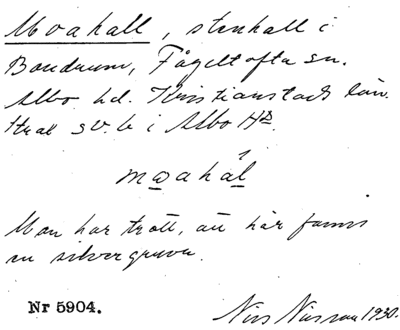 Moakall, stenhall i
Bondrum, Fågeltofta sn.
Albo hd. Kristianstads län.
Uttal sv. b i Albo Hd
mɷahál
Man har trott, att här fanns
en silvergruva.
Nr 5904.
Nils Nilsson 1930.